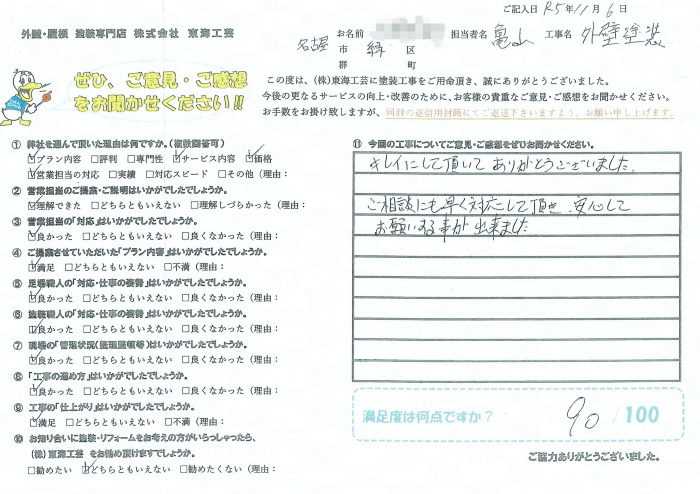 ご記入日 R5年11月6日
外壁・屋根 塗装専門店 株式会社 東海工芸
お名前 担当者名 亀山 工事名 外壁塗装
名古屋 市 緑 区
群 町
ぜひ、ご意見・ご感想
をお聞かせください!!
この度は、(株)東海工芸に塗装工事をご用命頂き、誠にありがとうございました。
今後の更なるサービスの向上・改善のために、お客様の貴重なご意見・ご感想をお聞かせください。
お手数をお掛け致しますが、同封の返信用封筒にてご返送下さいますよう、お願い申し上げます。
① 弊社を選んで頂いた理由は何ですか。(複数回答可)
☑プラン内容 □評判 □専門性 ☑サービス内容 ☑価格
☑営業担当の対応 □実績 □対応スピード □その他(理由:
② 営業担当のご提案・ご説明はいかがでしたでしょうか。
☑理解できた □どちらともいえない □理解しづらかった(理由:
③ 営業担当の「対応」はいかがでしたでしょうか。
☑良かった □どちらともいえない □良くなかった(理由:
④ ご提案させていただいた「プラン内容」はいかがでしたでしょうか。
☑満足 □どちらともいえない □不満(理由:
⑤ 足場職人の「対応・仕事の姿勢」はいかがでしたでしょうか。
☑良かった □どちらともいえない □良くなかった(理由:
⑥ 塗装職人の「対応・仕事の姿勢」はいかがでしたでしょうか。
☑良かった □どちらともいえない □良くなかった(理由:
⑦ 現場の「管理状況(整理整頓等)はいかがでしたでしょうか。
☑良かった □どちらともいえない □良くなかった(理由:
⑧ 「工事の進め方」はいかがでしたでしょうか。
☑良かった □どちらともいえない □良くなかった(理由:
⑨ 工事の「仕上がり」はいかがでしたでしょうか。
☑満足 □どちらともいえない □不満(理由:
⑩ お知り合いに塗装・リフォームをお考えの方がいらっしゃったら、
(株)東海工芸 をお勧め頂けますでしょうか。
□勧めたい ☑どちらともいえない □勧めたくない(理由:
⑪ 今回の工事についてご意見・ご感想をぜひお聞かせください。
キレイにして頂いて ありがとうございました。
ご相談にも早く対応して頂き、安心して
お願いする事が出来ました
満足度は何点ですか? 90 /100
ご協力ありがとうございました。